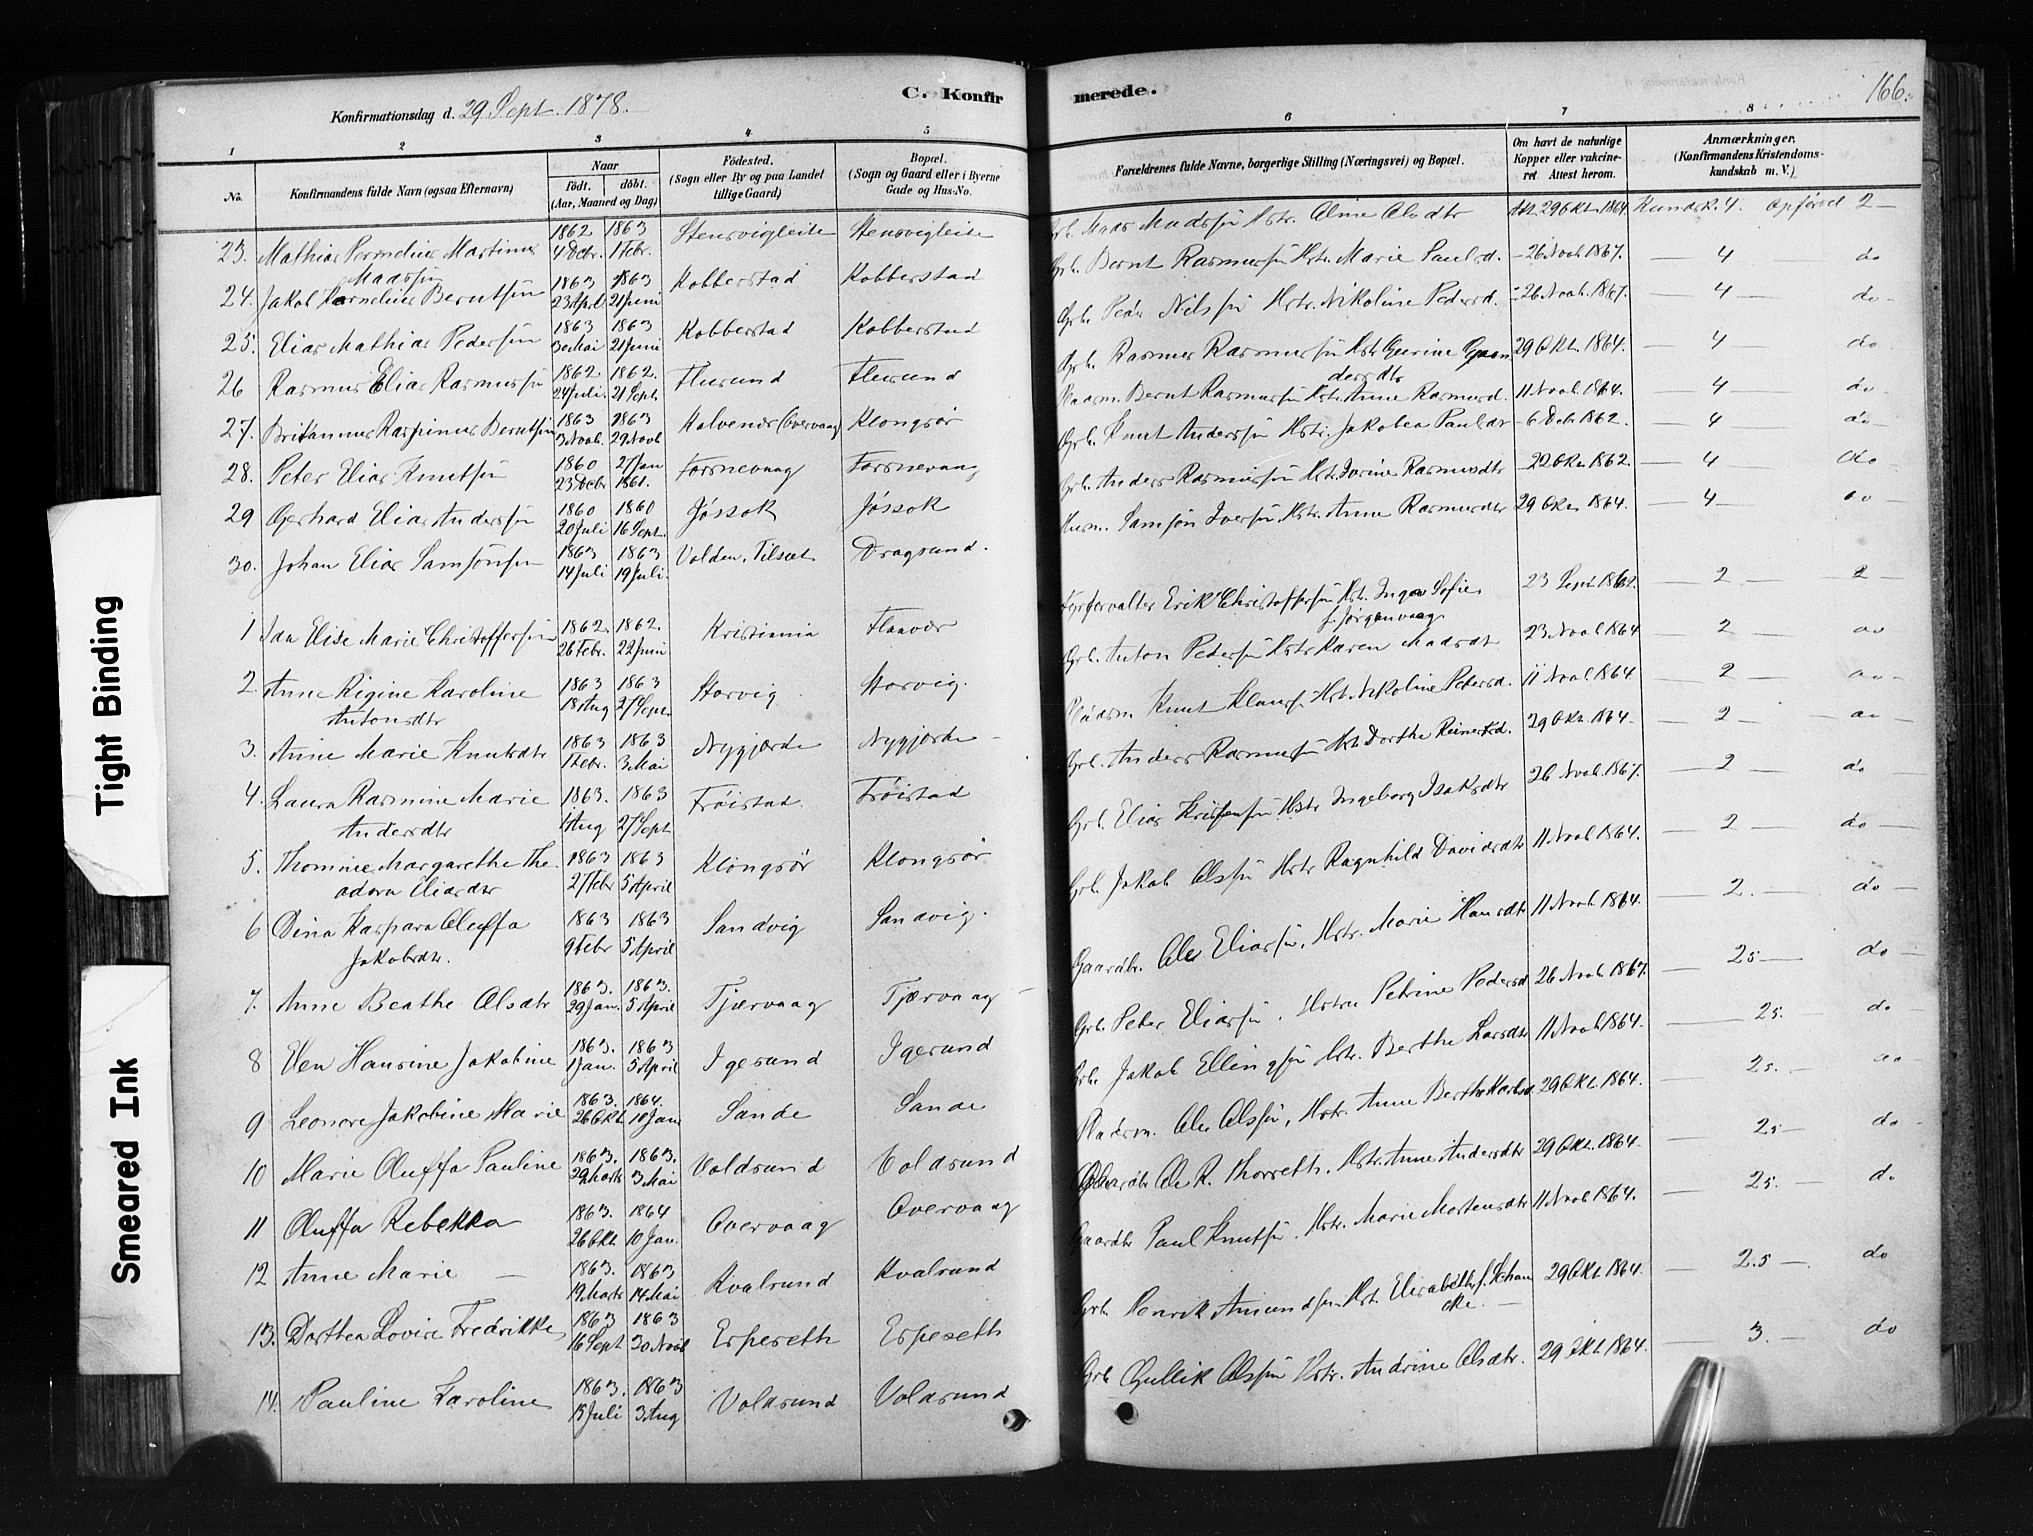 C. Konfirmerede.
166.
Konfirmationsdag d. 29 Sept. 1878.
1 2 3 4 5 6 7 8
No. Konfirmandens fulde Navn (ogsaa Efternavn) Naar født. døbt. (Aar, Maaned og Dag) Fødested. (Sogn eller By og paa Landet tillige Gaard.) Bopæl. (Sogn og Gaard eller i Byerne Gade og Hus-No. Forældrenes fulde Navne, borgerlige Stilling (Næringsvei) og Bopæl. Om havt de naturlige Kopper eller vakcineret. Attest herom. Anmærkninger. (Konfirmandens Kristendomskundskab m. V.)
23. Mathias Madssøn 1862 4 Decbr. 1863 1 Febr. Stensvigleite Stensvigleite Mads Madssøn Hstr. Oline Olsdtr 29 Okt. 1864 Kundsk. 4. Opførsel 2 —
24. Jakob Kornelius Berntsøn 1863 23 April 1863 21 Juni Kobberstad Kobberstad Grb. Bernt Rasmussøn Hstr. Marie Paulsd. — 26 Novb. 1867. — 4 do
25. Elias Mathias Pedersøn 1863 30 Mai 1863 21 Juni Kobberstad Kobberstad Grb. Peder Nilssøn Hstr. Nikoline Pedersd. — 26 Novb. 1867. — 4 — do —
26 Rasmus Elias Rasmussøn 1862 24 Juli. 1862. 21 Sept. Flusund Flusund Grb. Rasmus Rasmussøn Hstr 29 Okt. 1864. — 4 — do
27. Berntsøn 1863 3 Novb. 1863 29 Novb Klongsør Bernt Rasmussøn Hstr. Anne Rasmusd. 11 Novb. 1864. — 4 do
28. Peter Elias Knutsøn 1860 23 Decbr 27 Jan 1861. Torsnevaag Torsnevaag Grb. Knut Anderssøn Hstr. Jakobea Paulsdtr — 6 Decb. 1862. — 4 do —
29 Gerhard Elias Anderssøn 1860 20 Juli 1860 16 Sept. Jøssok Jøssok Grb. Anders Rasmussøn Hstr. Rasmusdtr — 22 Okt. 1862. — 4 do
30. Johan Elias Samsonsøn 1863 14 Juli 1863 19 Juli. Volden, Tilset Dragsund. Husm. Samson Iversøn, Hstr. Anne Rasmusdtr 29 Okt. 1864. — 4 — do —
1 Ida Elise Marie Christoffersen 1862. 26 Febr. 1862. 22 Juni Kristiania Flaavær Fyrforvalter Erik Christoffersøn Hst. Inga Sofie f. Jørgenvaag 23 Sept. — 2 — 2 —
2. Anne Regine Karoline Antonsdtr 1863 18 Aug 1863 27 Sept. Storvig Storvig. Grb. Anton Pedersøn Hstr Karen Madsdtr 23 Novb. 1864 — 2 do
3. Anne Marie Knutsdtr 1863 1 Febr. 1863 3 Mai Nygjerde Nygjerde — Knut Hst. Nikoline Pedersd. 11 Novb. 1864 — 2 — do —
4. Laura Rasmine Marie Andersdtr 1863. 1 Aug 1863 27 Sept Frøistad. Frøistad Grb. Anders Rasmussøn Hst. Dorthe Reinertsd. 29 Okt. 1864. — 2 — do —
5. Thomine Margarethe Theodora Eliasdtr 1863 27 Febr 1863 5 April Klongsør Klongsør Grb. Elias Hstr Ingeborg Isaksdtr 26 Novb. 1867. — 2 — do —
6 Dina Kaspara Oluffa Jakobsdtr. 1863 9 Febr 1863 5 April Sandvig Sandvig. Grb. Jakob Olssøn Hstr Ragnhild Davidsdtr 11 Novb. 1864. — 2 — do —
7. Anne Beathe Olsdtr 1863. 29 Jan. 1863. 5 April Tjærvaag Tjærvaag Gaardbr. Ole Eliassøn. Hstr. Marie Hansdtr 11 Novb. 1864. — 2. — do —
8 Elen Hansine Jakobine 1863. 1 Jan. 1863 5 April Igesund Igesund Grb. Peter Eliassøn. Hstru Petrine Pedersd 26 Novb. 1867. — 2 5 — do —
9 Leonore Jakobine Marie 1863. 26 Okt. 1864. 10 Jan Sande Sande Grb. Jakob Ellingsøn Hstr. Berthe Larsdtr 11 Novb. 1864. — 2 5. — do —
10 Marie Oluffa Pauline 1863. 29 Marts 1863. 3 Mai Voldsund Voldsund Pladsm. Ole Olssøn, Hstr. Anne 29 Okt. 1864. — 2 5. — do
11 Oluffa Rebekka 1863. 26 Okt. 1864 10 Jan. Overvaag Overvaag Gaardbr Ole R. Thorseth. Hstr. Anne Andersdtr 29 Okt. 1864. — 2 5 — do —
12 Anne Marie — 1863. 19 Marts 1863 14 Mai Kvalsund Kvalsund Gaardbr Paul Knutsøn. Hstr. Marie Mortensdtr 11 Novb. 1864. — 2 5. — do
13. Dorthea Lovise Fredrikke 1863 16 Sept 1863 30 Novb Espeseth Espeseth Grb. Henrik Amundsøn Hst. Elisabeth f. Schancke. — 29 Okt. 1864. — 2.5 — do
14. Pauline Karoline 1863. 15 Juli 1863 3 Aug Voldsund Voldsund Grb Gullik Olssøn Hstr. Andrine Olsdtr. 29 Okt. 1864. — 3. — do
Tight Binding
Smeared Ink